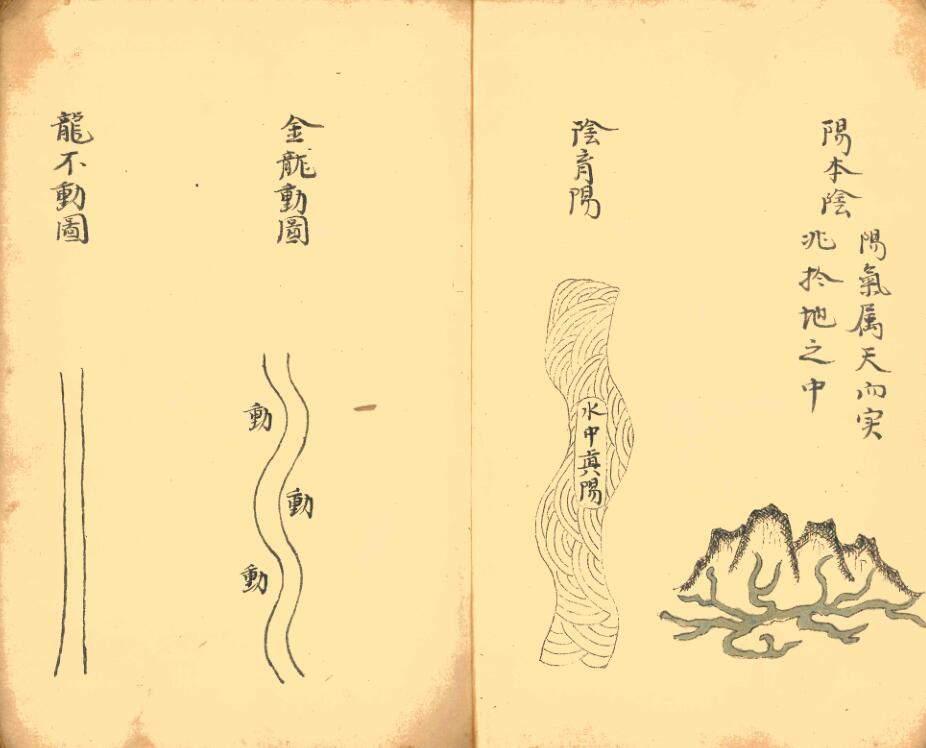 陽本陰
陽氣属天而実
兆扵地之中
陰育陽
水中真陽
金龍動圖
動
動
動
龍不動圖